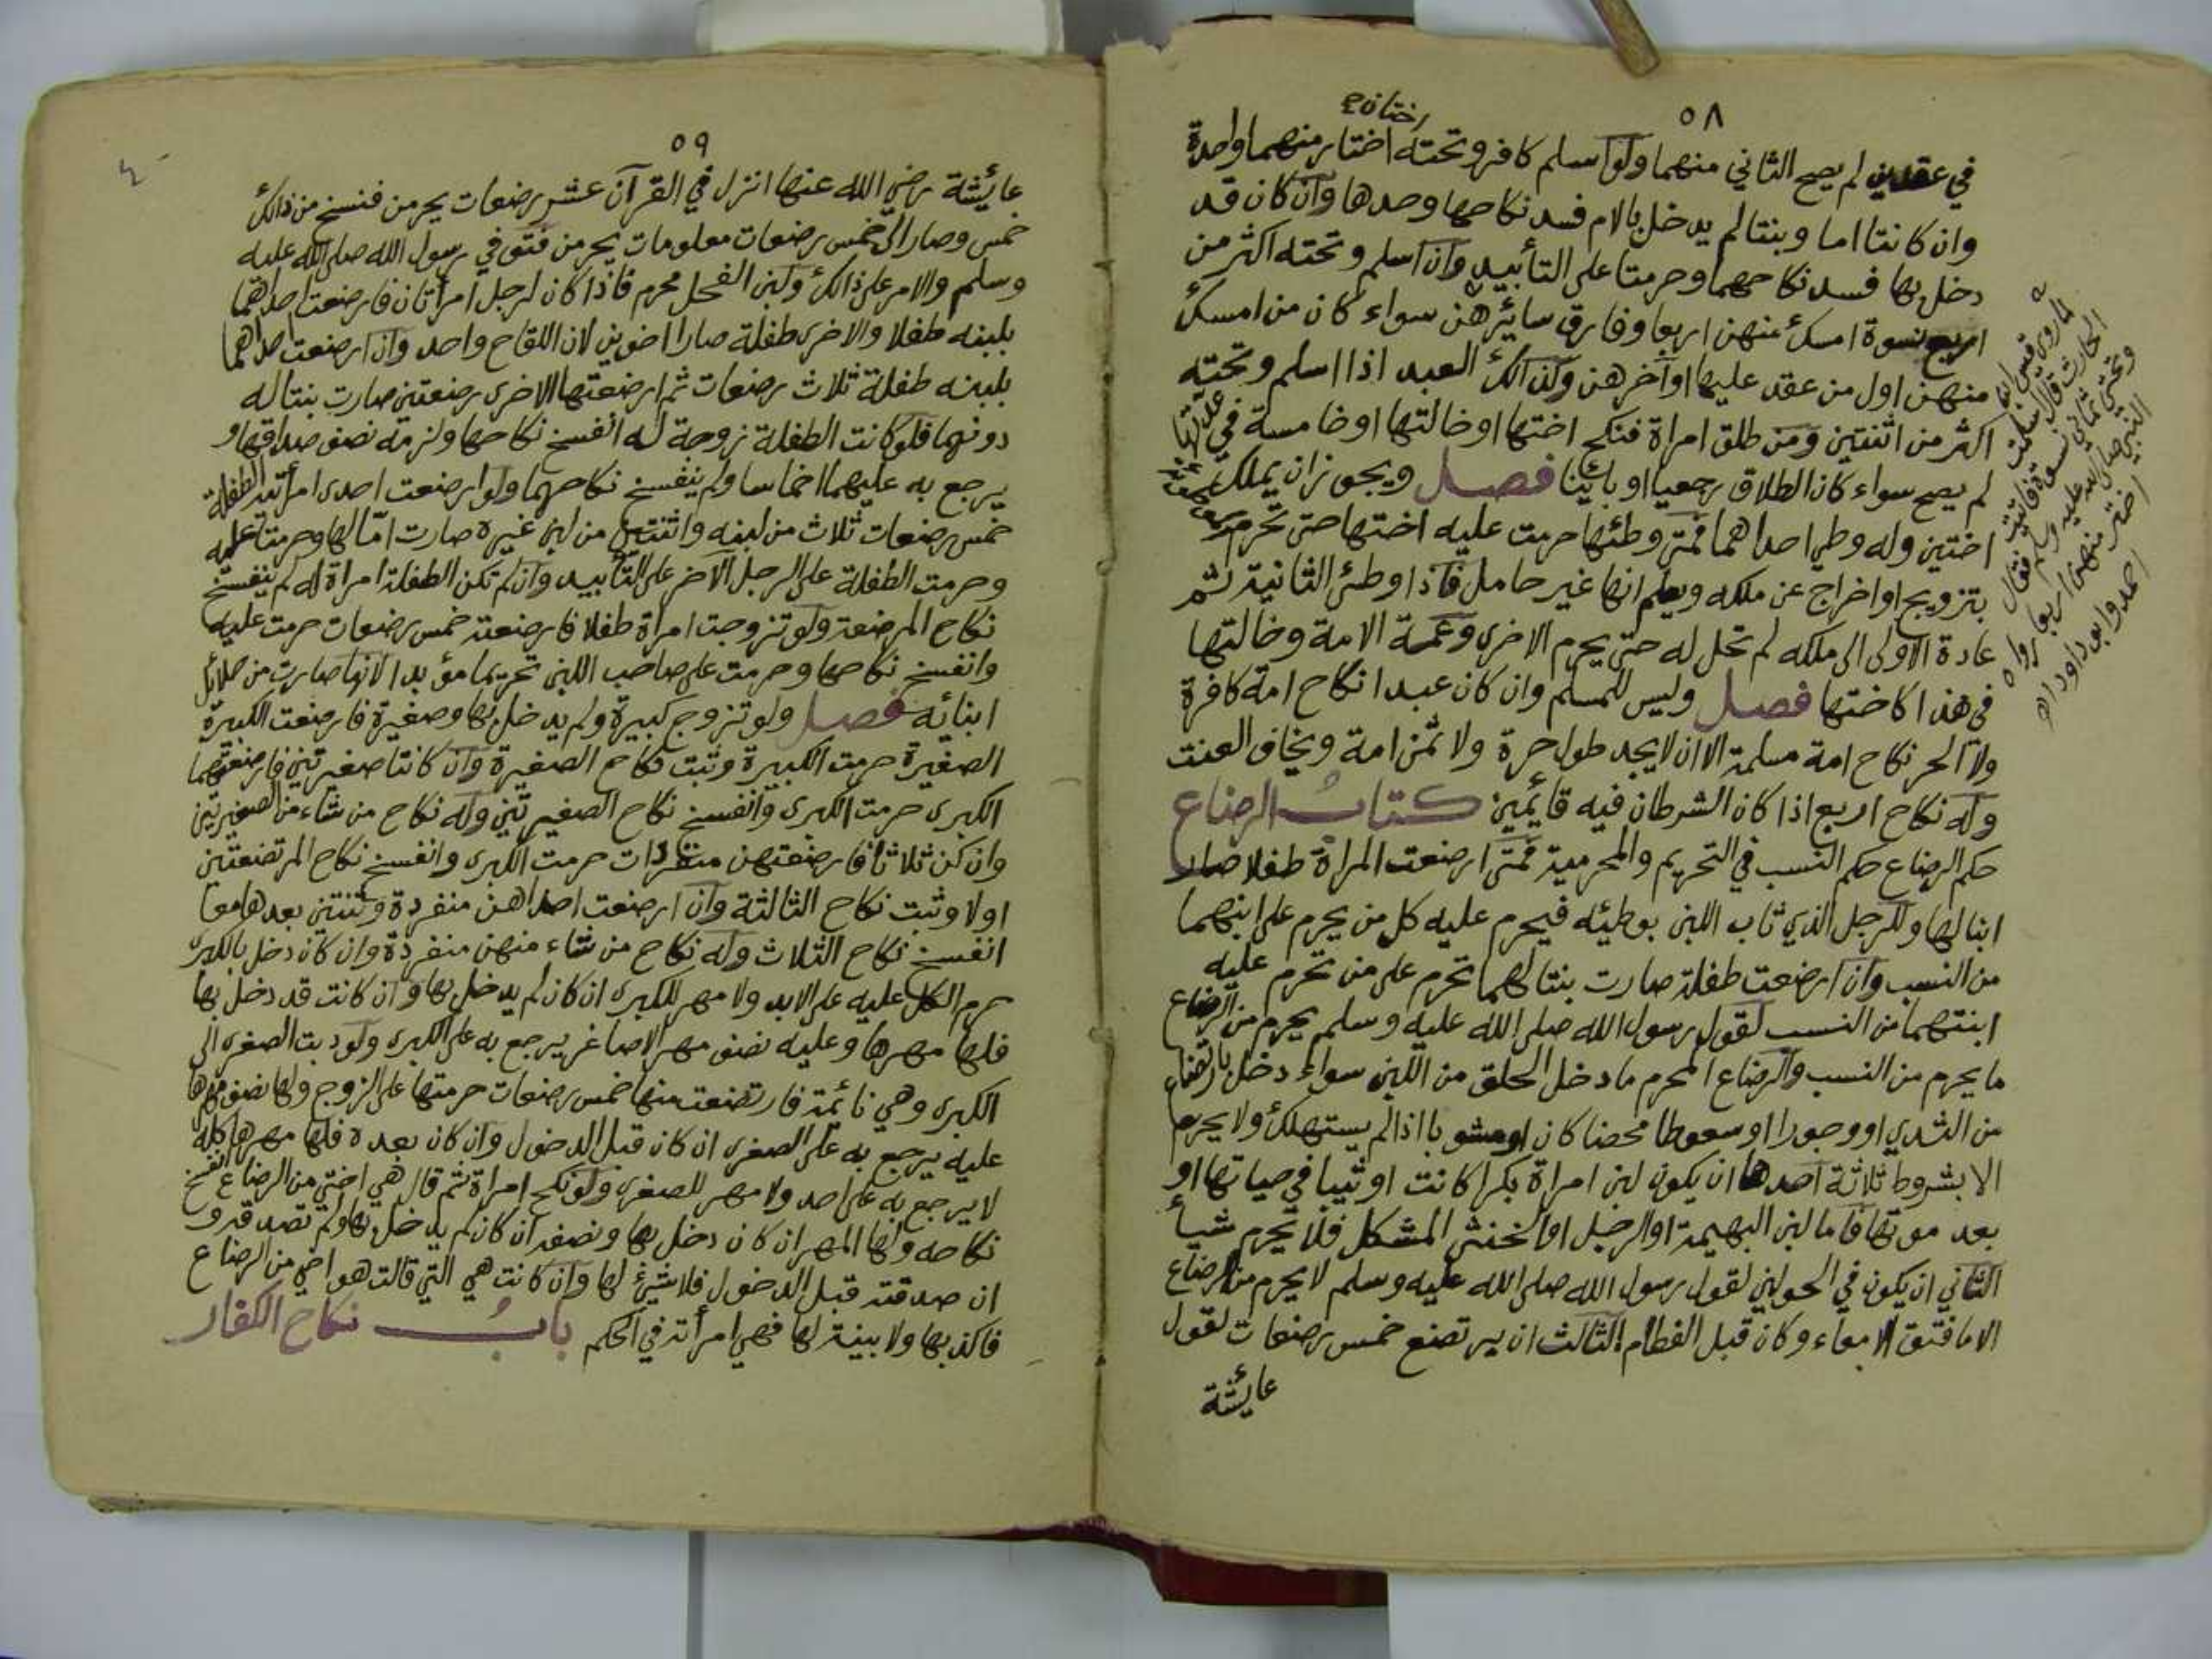 ٥٨
اختان صح
في عقدين لم يصح الثاني منهما ولو اسلم كافر وتحته اختار منهما واحدة
وان كانتا اما وبنتا لم يدخل بالام فسد نكاحها وحدها وان كان قد
دخل بها فسد نكاحهما وحرمتا على التأبيد وان اسلم وتحته اكثر من
اربع نسوة امسك منهن اربعا وفارق سائرهن سواء كان من امسك
منهن اول من عقد عليها او آخرهن وكذالك العبد اذا اسلم وتحته
اكثر من اثنتين ومن طلق امراة فنكح اختها او خالتها او خامسة في عدتها
لم يصح سواء كان الطلاق رجعيا او بائنا فصل ويجوز ان يملك
اختين وله وطي احداهما فمتى وطئها حرمت عليه اختها حتى تحرم
بتزويج او اخراج عن ملكه ويعلم انها غير حامل فاذا وطئ الثانية ثم
عادة الاولى الى ملكه لم تحل له حتى يحرم الاخرى وعمة الامة وخالتها
في هذا كاختها فصل وليس للمسلم وان كان عبدا نكاح امة كافرة
ولا الحر نكاح امة مسلمة الا ان لا يجد طول حرة ولا ثمن امة ويخاف العنت
وله نكاح اربع اذا كان الشرطان فيه قائمين كتاب الرضاع
حكم الرضاع حكم النسب في التحريم والمحرمية فمتى ارضعت المراة طفلا صار
ابنا لها وللرجل الذي ثاب اللبن بوطئه فيحرم عليه كل من يحرم على ابنهما
من النسب وان ارضعت طفلة صارت بنتا لهما تحرم على من تحرم عليه
ابنتهما من النسب لقول رسول الله صلى الله عليه وسلم يحرم من الرضاع
ما يحرم من النسب والرضاع المحرم ما دخل الحلق من اللبن سواء دخل بارتضاع
من الثدي او وجورا او سعوطا محضا كان او مشوبا اذا لم يستهلك ولا يحرم
الا بشروط ثلاثة احدها ان يكون لبن امراة بكرا كانت او ثيبا في حياتها او
بعد موتها فاما لبن البهيمة او الرجل او الخنثى المشكل فلا يحرم شيأ
الثاني ان يكون في الحولين لقول رسول الله صلى الله عليه وسلم لا يحرم من الرضاع
الا ما فتق الامعاء وكان قبل الفطام الثالث ان يرتضع خمس رضعات لقول
عايشة
لما روى قيس ابن
الحارث قال اسلمت
وتحتي ثماني نسوة فاتيت
النبي صلى الله عليه وسلم فقال
اختر منهن اربعا رواه
احمد وابو داود اه
٥٩
عايشة رضي الله عنها انزل في القرآن عشر رضعات يحرمن فنسخ من ذالك
خمس وصار الى خمس رضعات معلومات يحرمن فتوفي رسول الله صلى الله عليه
وسلم والامر على ذالك ولبن الفحل محرم فاذا كان لرجل امرأتان فارضعت احداهما
بلبنه طفلا والاخرى طفلة صارا اخوين لان اللقاح واحد وان ارضعت احداهما
بلبنه طفلة ثلاث رضعات ثم ارضعتها الاخرى رضعتين صارت بنتا له
دونهما فلو كانت الطفلة زوجة له انفسخ نكاحها ولزمه نصف صداقها و
يرجع به عليهما اخماسا ولم ينفسخ نكاحهما ولو ارضعت احدى امرأتيه الطفلة
خمس رضعات ثلاث من لبنه واثنتين من لبن غيره صارت امّا لها وحرمتا عليه
وحرمت الطفلة على الرجل الآخر على التأبيد وان لم تكن الطفلة امراة له لم ينفسخ
نكاح المرضعة ولو تزوجت امراة طفلا فارضعته خمس رضعات حرمت عليه
وانفسخ نكاحها وحرمت على صاحب اللبن تحريما مؤبدا لانها صارت من حلائل
ابنائه فصل ولو تزوج كبيرة ولم يدخل بها وصغيرة فارضعت الكبيرة
الصغيرة حرمت الكبيرة وثبت نكاح الصغيرة وان كانتا صغيرتين فارضعتهما
الكبرى حرمت الكبرى وانفسخ نكاح الصغيرتين وله نكاح من شاء من الصغيرتين
وان كن ثلاثا فارضعتهن متفردات حرمت الكبرى وانفسخ نكاح المرتضعتين
اولا وثبت نكاح الثالثة وان ارضعت احداهن منفردة وثنتين بعدها معا
انفسخ نكاح الثلاث وله نكاح من شاء منهن منفردة وان كان دخل بالكبرى
حرم الكل عليه على الابد ولا مهر للكبرى ان كان لم يدخل بها وان كانت قد دخل بها
فلها مهرها وعليه نصف مهر الاصاغر يرجع به على الكبرى ولو دبت الصغرى الى
الكبرى وهي نائمة فارتضعت منها خمس رضعات حرمتها على الزوج ولها نصف مهرها
عليه يرجع به على الصغرى ان كان قبل الدخول وان كان بعده فلها مهرها كله
لا يرجع به على احد ولا مهر للصغرى ولو نكح امراة ثم قال هي اختي من الرضاع انفسخ
نكاحه ولها المهر ان كان دخل بها ونصفه ان كان لم يدخل بها ولم تصدقه و
ان صدقته قبل الدخول فلا شيئ لها وان كانت هي التي قالت هو اخي من الرضاع
فاكذبها ولا بينة لها فهي امرأته في الحكم باب نكاح الكفار